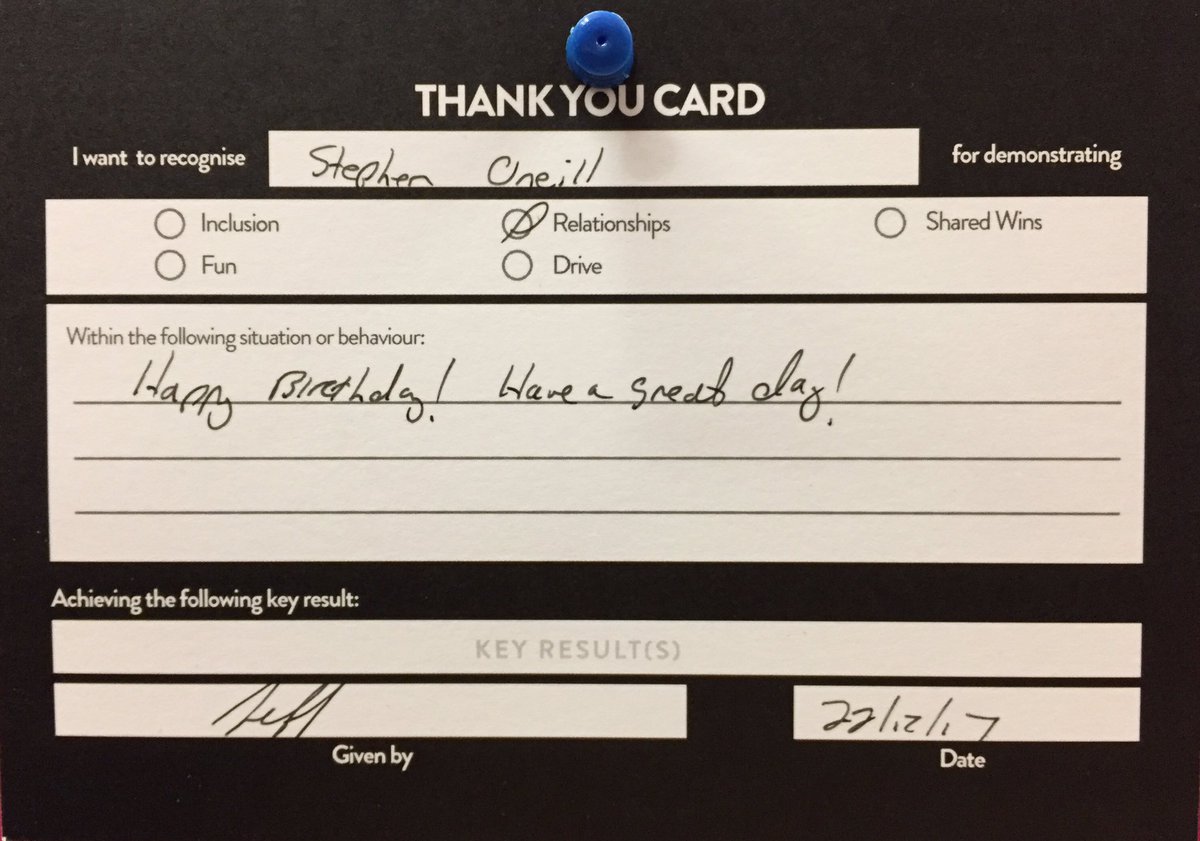 THANK YOU CARD
I want to recognise Stephen Oneill for demonstrating
Inclusion Relationships Shared Wins
Fun Drive
Within the following situation or behaviour:
Happy Birthday! Have a great day!
Achieving the following key result:
KEY RESULT(S)
Jeff 22/12/17
Given by Date